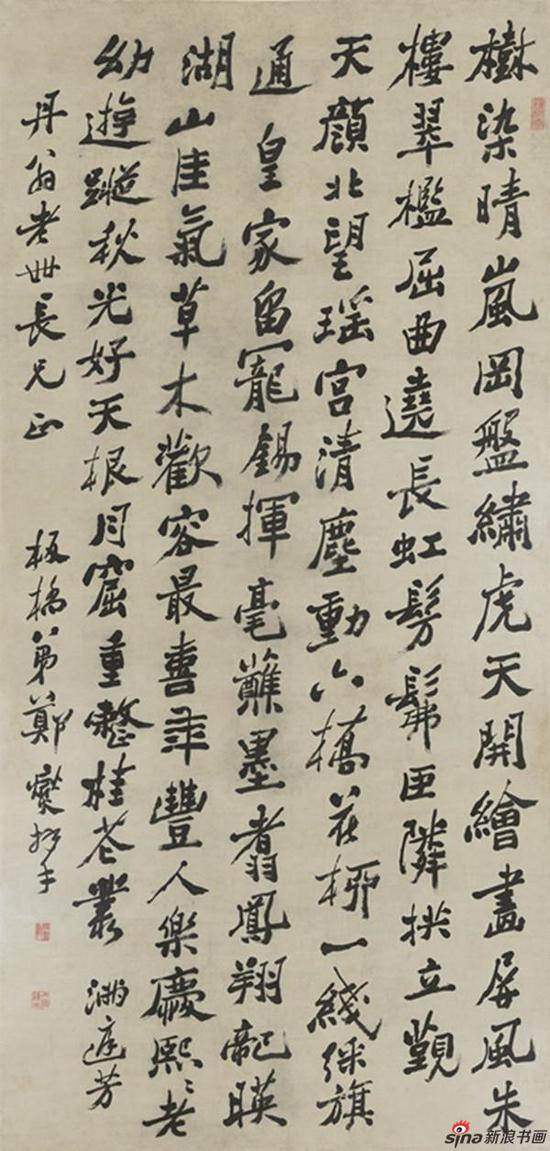 樹染晴嵐岡盤繡虎天開繪畫屏風朱
樓翠檻屈曲遶長虹髣髴匝隣拱立覲
天顏北望瑤宮清塵動六橋花柳一綫綵旗
通皇家留寵錫揮毫蘸墨翥鳳翔龍暎
湖山佳氣草木歡容最喜年豐人樂慶熙〻老
幼遊蹤秋光好天根月窟重整桂花叢 滿庭芳
丹翁老世長兄正 板橋弟鄭燮拜手
sina新浪书画